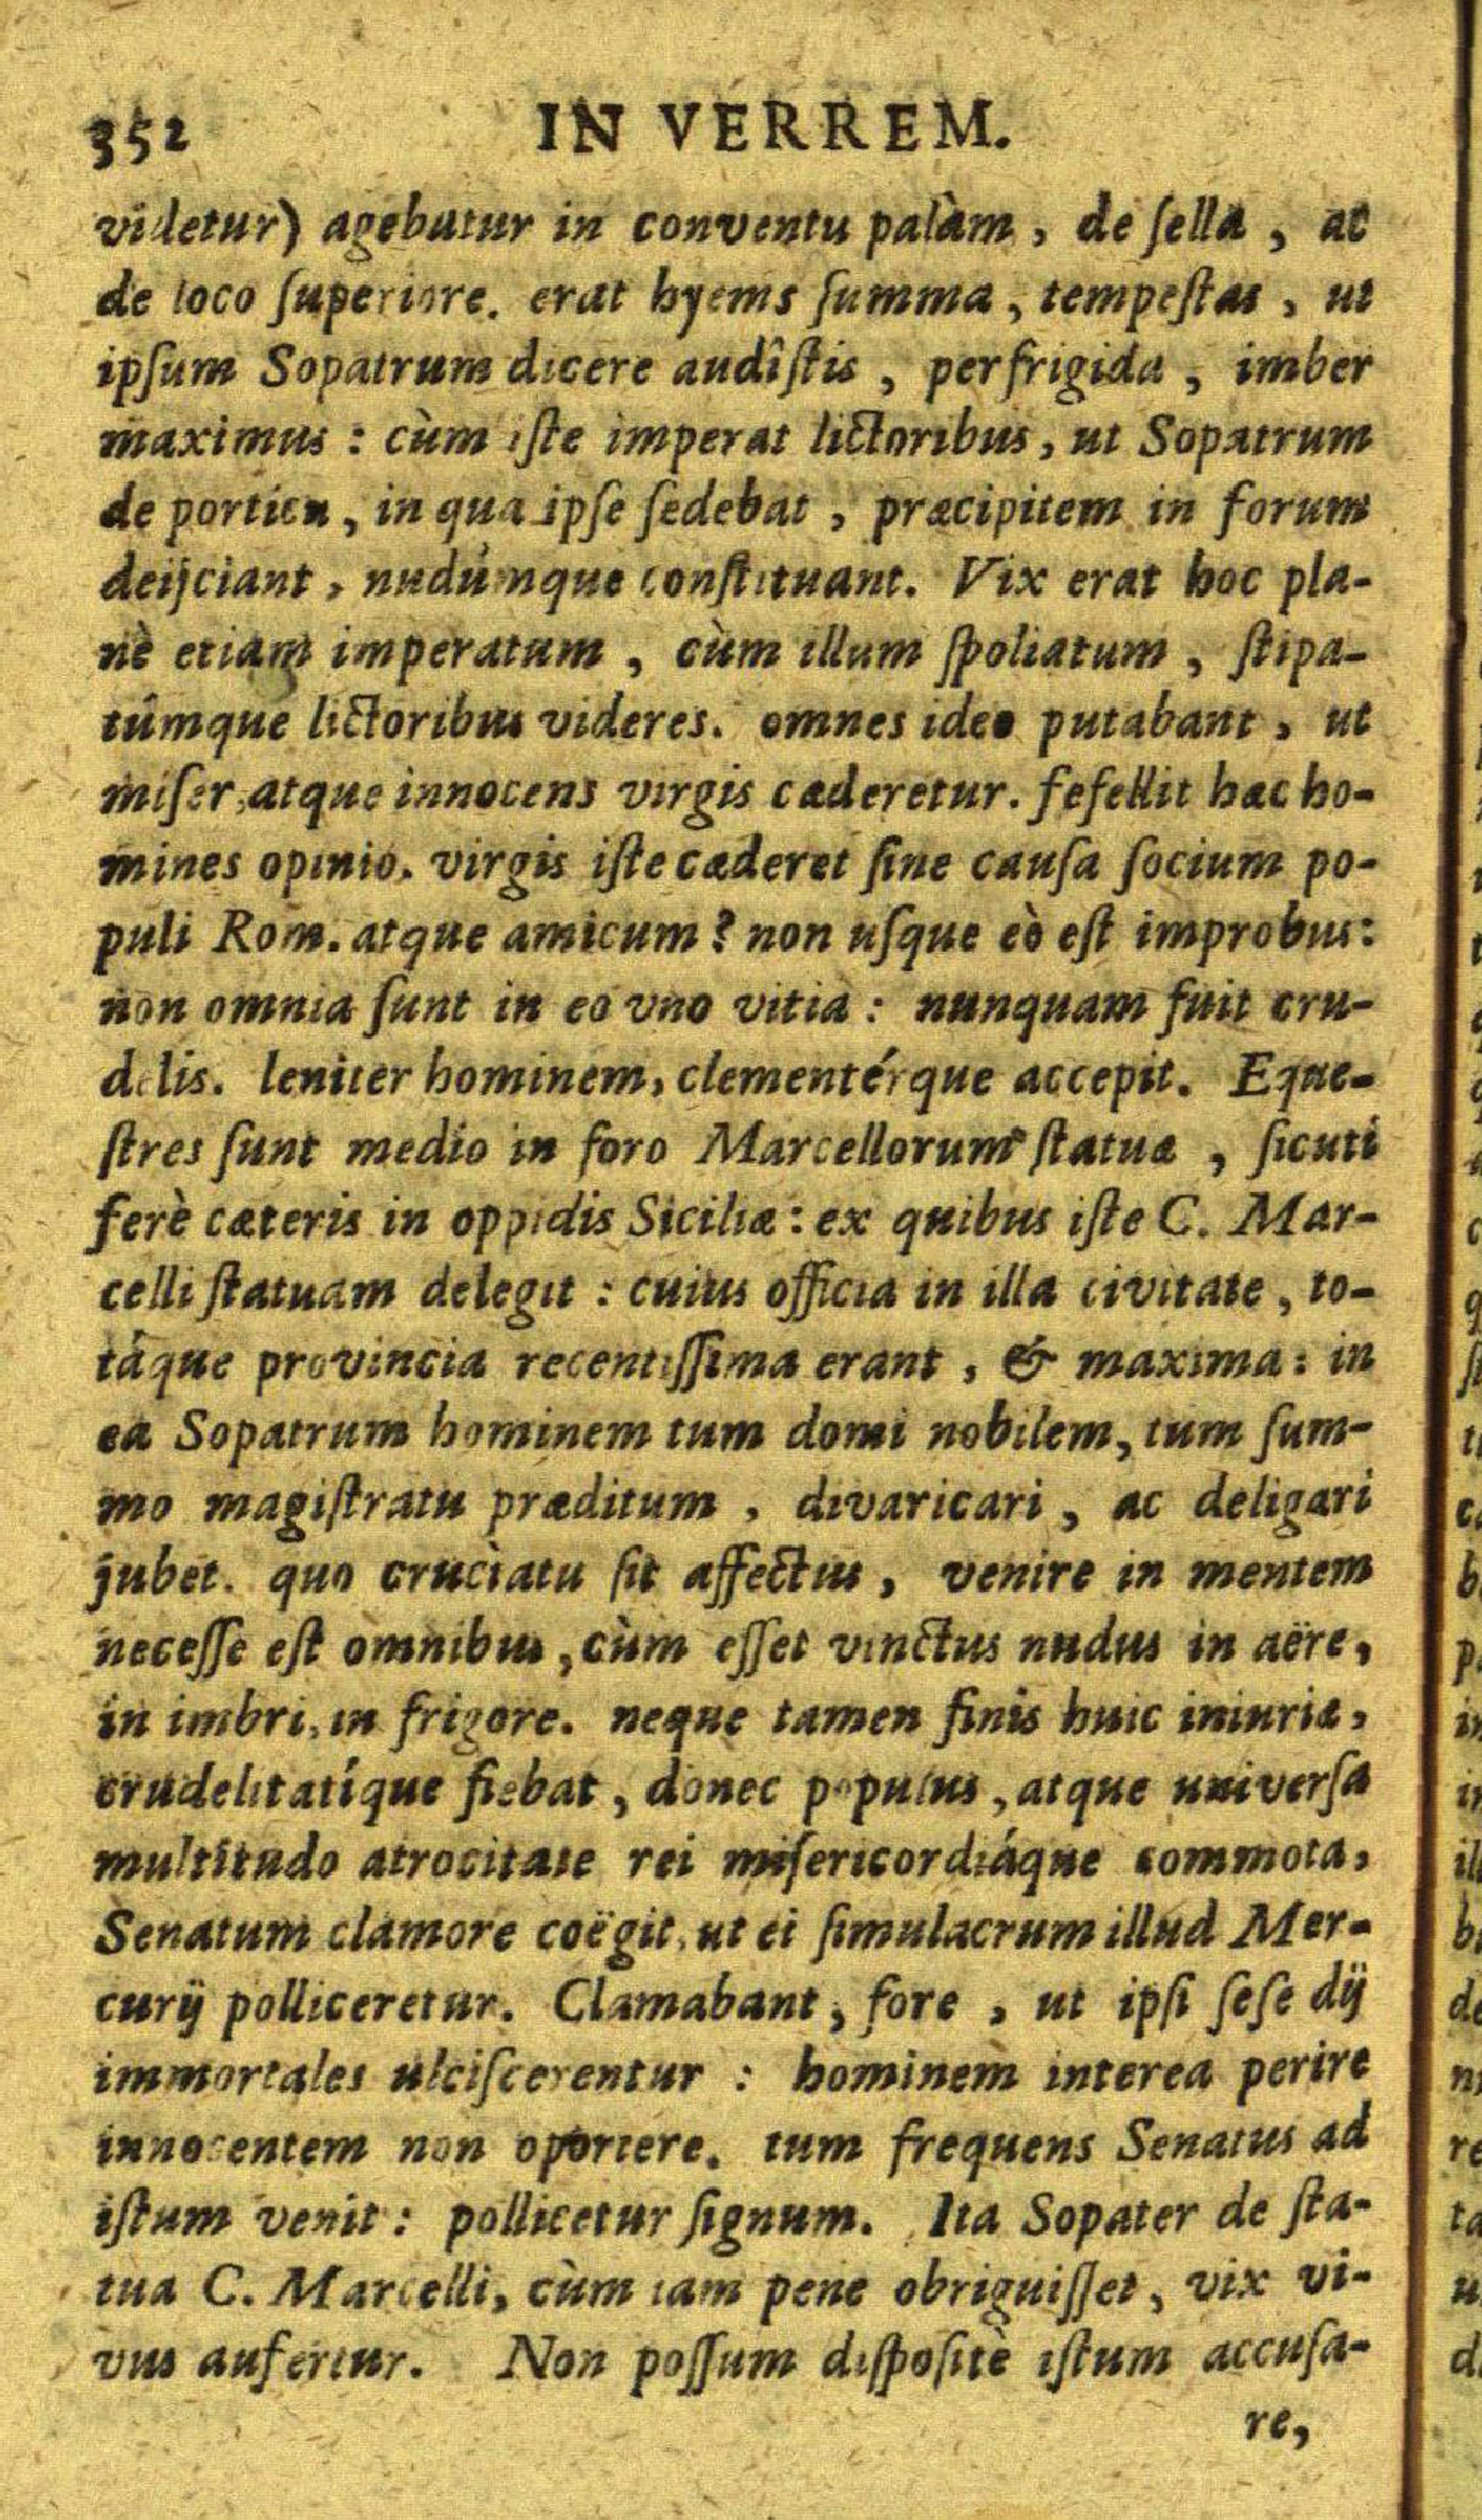 352 IN VERREM.
videtur) agebatur in conventu palàm, de ſella, ac
de loco ſuperiore. erat hyems ſumma, tempeſtas, ut
ipſum Sopatrum dicere audîſtis, perfrigida, imber
maximus: cùm iſte imperat lictoribus, ut Sopatrum
de porticu, in qua ipſe ſedebat, præcipitem in forum
deijciant, nudúmque conſtituant. Vix erat hoc pla-
nè etiam imperatum, cùm illum ſpoliatum, ſtipa-
túmque lictoribus videres. omnes ideo putabant, ut
miſer, atque innocens virgis cæderetur. fefellit hæc ho-
mines opinio. virgis iſte cæderet ſine cauſa ſocium po-
puli Rom. atque amicum? non uſque eò eſt improbus:
non omnia ſunt in eo vno vitia: nunquam fuit cru-
delis. leniter hominem, clementérque accepit. Eque-
ſtres ſunt medio in foro Marcellorum ſtatuæ, ſicuti
ferè cæteris in oppidis Siciliæ: ex quibus iſte C. Mar-
celli ſtatuam delegit: cuius officia in illa civitate, to-
táque provincia recentiſſima erant, & maxima: in
ea Sopatrum hominem tum domi nobilem, tum ſum-
mo magiſtratu præditum, divaricari, ac deligari
jubet. quo cruciatu ſit affectus, venire in mentem
neceſſe eſt omnibus, cùm eſſet vinctus nudus in aëre,
in imbri, in frigore. neque tamen finis huic iniuriæ,
crudelitatíque fiebat, donec populus, atque univerſa
multitudo atrocitate rei miſericordiáque commota,
Senatum clamore coëgit, ut ei ſimulacrum illud Mer-
curij polliceretur. Clamabant, fore, ut ipſi ſeſe dij
immortales ulciſcerentur: hominem interea perire
innocentem non oportere. tum frequens Senatus ad
iſtum venit: pollicetur ſignum. Ita Sopater de ſta-
tua C. Marcelli, cùm iam pene obriguiſſet, vix vi-
vus aufertur. Non poſſum diſpoſitè iſtum accuſa-
re,